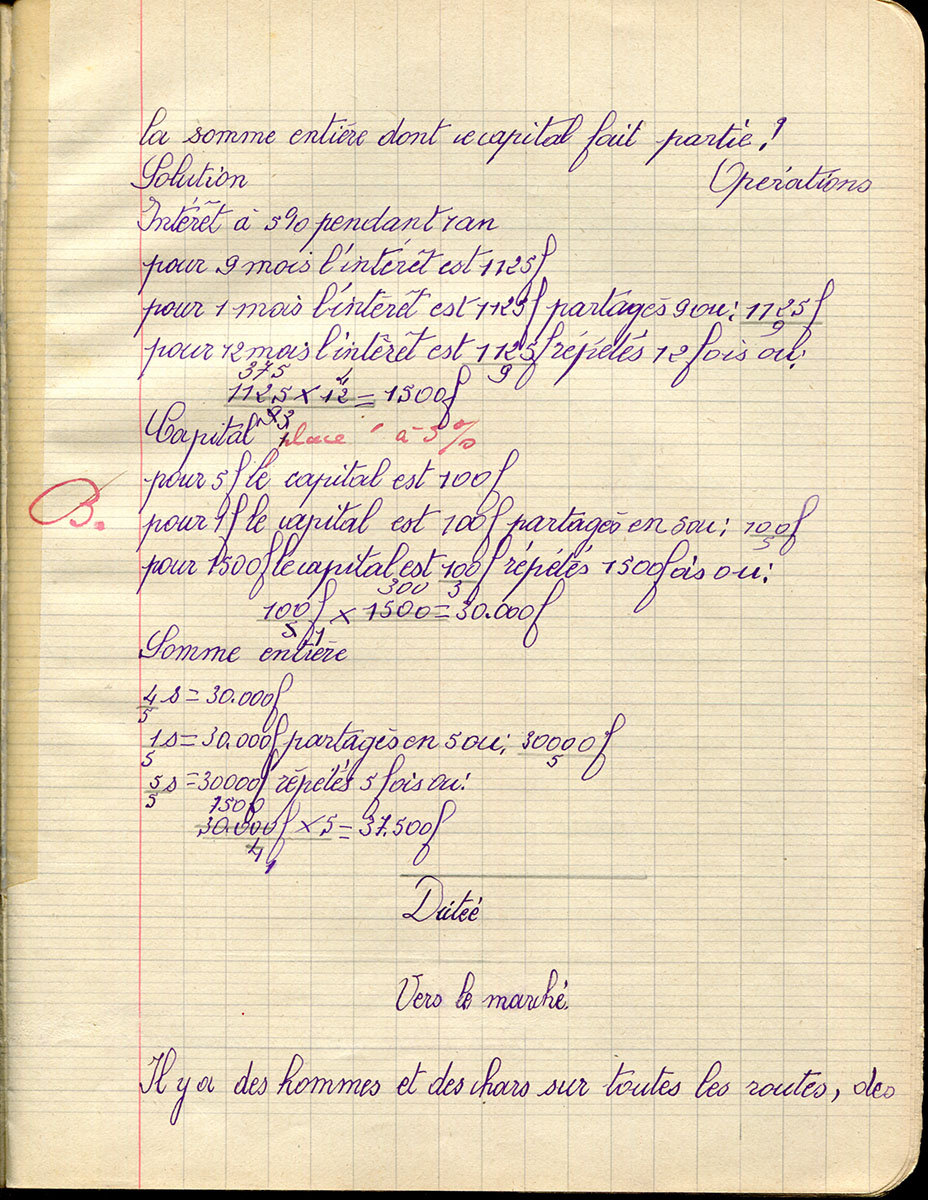 la somme entière dont ce capital fait partie ?
Solution Opérations
Intérêt à 5% pendant 1 an
pour 9 mois l'intérêt est 1125f
pour 1 mois l'intérêt est 1125f partagés 9 ou : 1125f
9
pour 12 mois l'intérêt est 1125f répétés 12 fois ou :
9
375 4
1125 × 12 = 1500f
93
1
Capital placé à 5%
pour 5f le capital est 100f
B.
pour 1f le capital est 100f partagés en 5 ou : 100f
5
pour 1500f le capital est 100f répétés 1500 fois ou :
5
300
100f × 1500 = 30.000f
5 1
Somme entière
4 s = 30.000f
5
1 s = 30.000f partagés en 5 ou ; 30000f
5 5
5 s = 30000f répétés 5 fois ou :
5
1500
30.000f × 5 = 37.500f
4
1
Dictée
Vers le marché.
Il y a des hommes et des chars sur toutes les routes, des